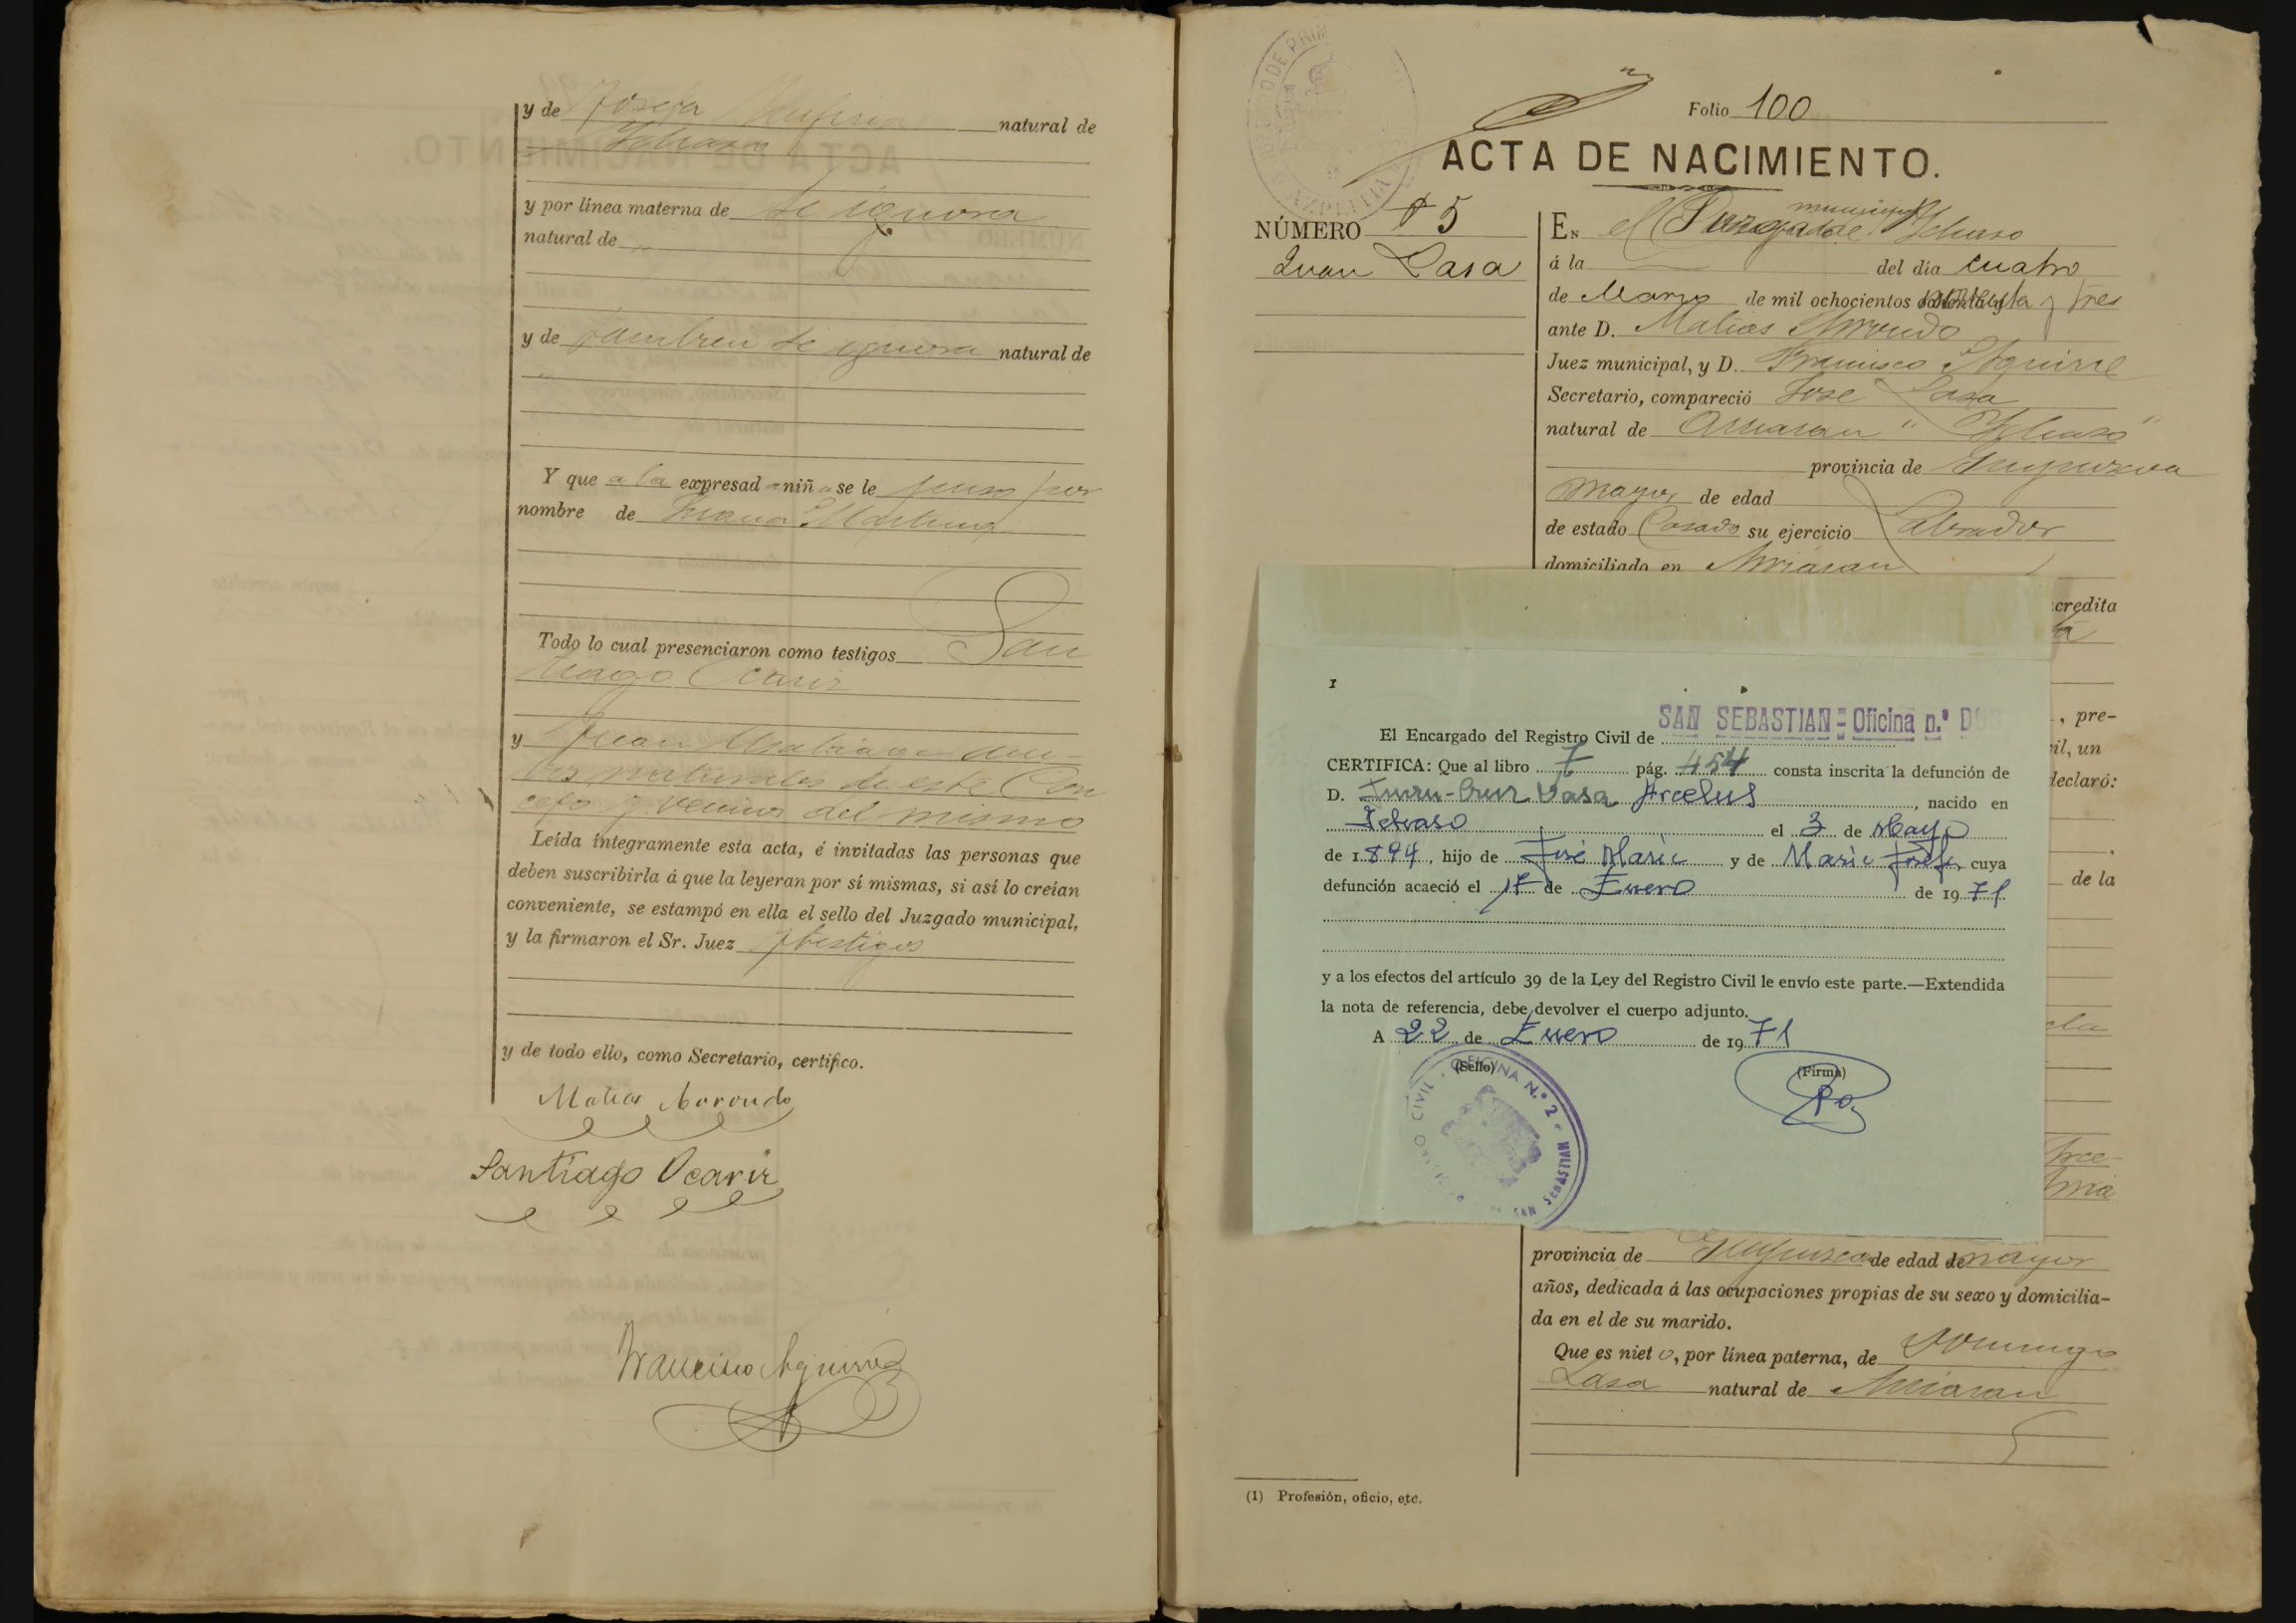 y de Josefa natural de
Ichaso
y por línea materna de se ignora
natural de
y de tambien se ignora natural de
Y que a la expresad a niñ a se le puso por
nombre de Juana Martina
Todo lo cual presenciaron como testigos San
tiago Ocariz
y Juan
naturales de este Con
cejo y vecinos del mismo
Leída íntegramente esta acta, é invitadas las personas que
deben suscribirla á que la leyeran por sí mismas, si así lo creían
conveniente, se estampó en ella el sello del Juzgado municipal,
y la firmaron el Sr. Juez y testigos
y de todo ello, como Secretario, certifico.
Matias Arrondo
Santiago Ocariz
Francisco Aguirre
Folio 100
ACTA DE NACIMIENTO.
NÚMERO 5
Juan Lasa
En el Juzgado municipal de Ichaso
á la del día cuatro
de Marzo de mil ochocientos noventa y tres
ante D. Matias Arrondo
Juez municipal, y D. Francisco Aguirre
Secretario, compareció Jose Lasa
natural de Arriaran "Ichaso"
provincia de Guipuzcoa
mayor de edad
de estado Casado su ejercicio Labrador
domiciliado en Arriaran
credita
, pre-
il, un
declaró:
de la
1
El Encargado del Registro Civil de SAN SEBASTIAN = Oficina n.º DOS
CERTIFICA: Que al libro 7 pág. 454 consta inscrita la defunción de
D. Juan-Cruz Lasa Arcelus, nacido en
Ichaso el 3 de Mayo
de 1.894, hijo de José Maria y de Maria Josefa cuya
defunción acaeció el 17 de Enero de 1971
y a los efectos del artículo 39 de la Ley del Registro Civil le envío este parte.—Extendida
la nota de referencia, debe devolver el cuerpo adjunto.
A 22 de Enero de 1971
(Sello) (Firma)
REGISTRO CIVIL · OFICINA N.º 2 · SAN SEBASTIAN
provincia de Guipuzcoa de edad de mayor
años, dedicada á las ocupaciones propias de su sexo y domicilia-
da en el de su marido.
Que es niet o, por línea paterna, de Domingo
Lasa natural de Arriaran
(1) Profesión, oficio, etc.